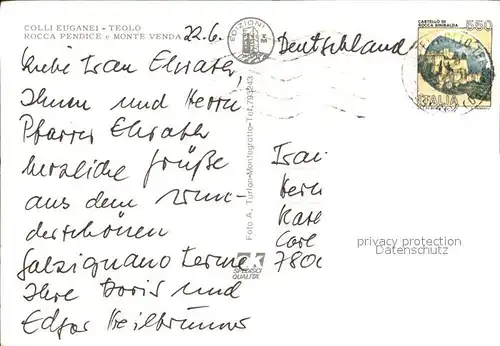 COLLI EUGANEI - TEOLO
ROCCA PENDICE e MONTE VENDA
22.6.
EDIZIONI
Deutschland
CASTELLO DI
ROCCA SINIBALDA
550
ITALIA
Liebe Frau Elsäßer,
Ihnen und Herrn
Pfarrer Elsäßer
herzliche Grüße
aus dem wun-
derschönen
Galzignano Terme
Ihre Doris und
Edgar Heilbrunner
Foto A. Turlon-Montegrotto-Tel. 793243
SPEDISCI
QUALITÀ
Frau
Herr
Karl
Carl
7800
privacy protection
Datenschutz